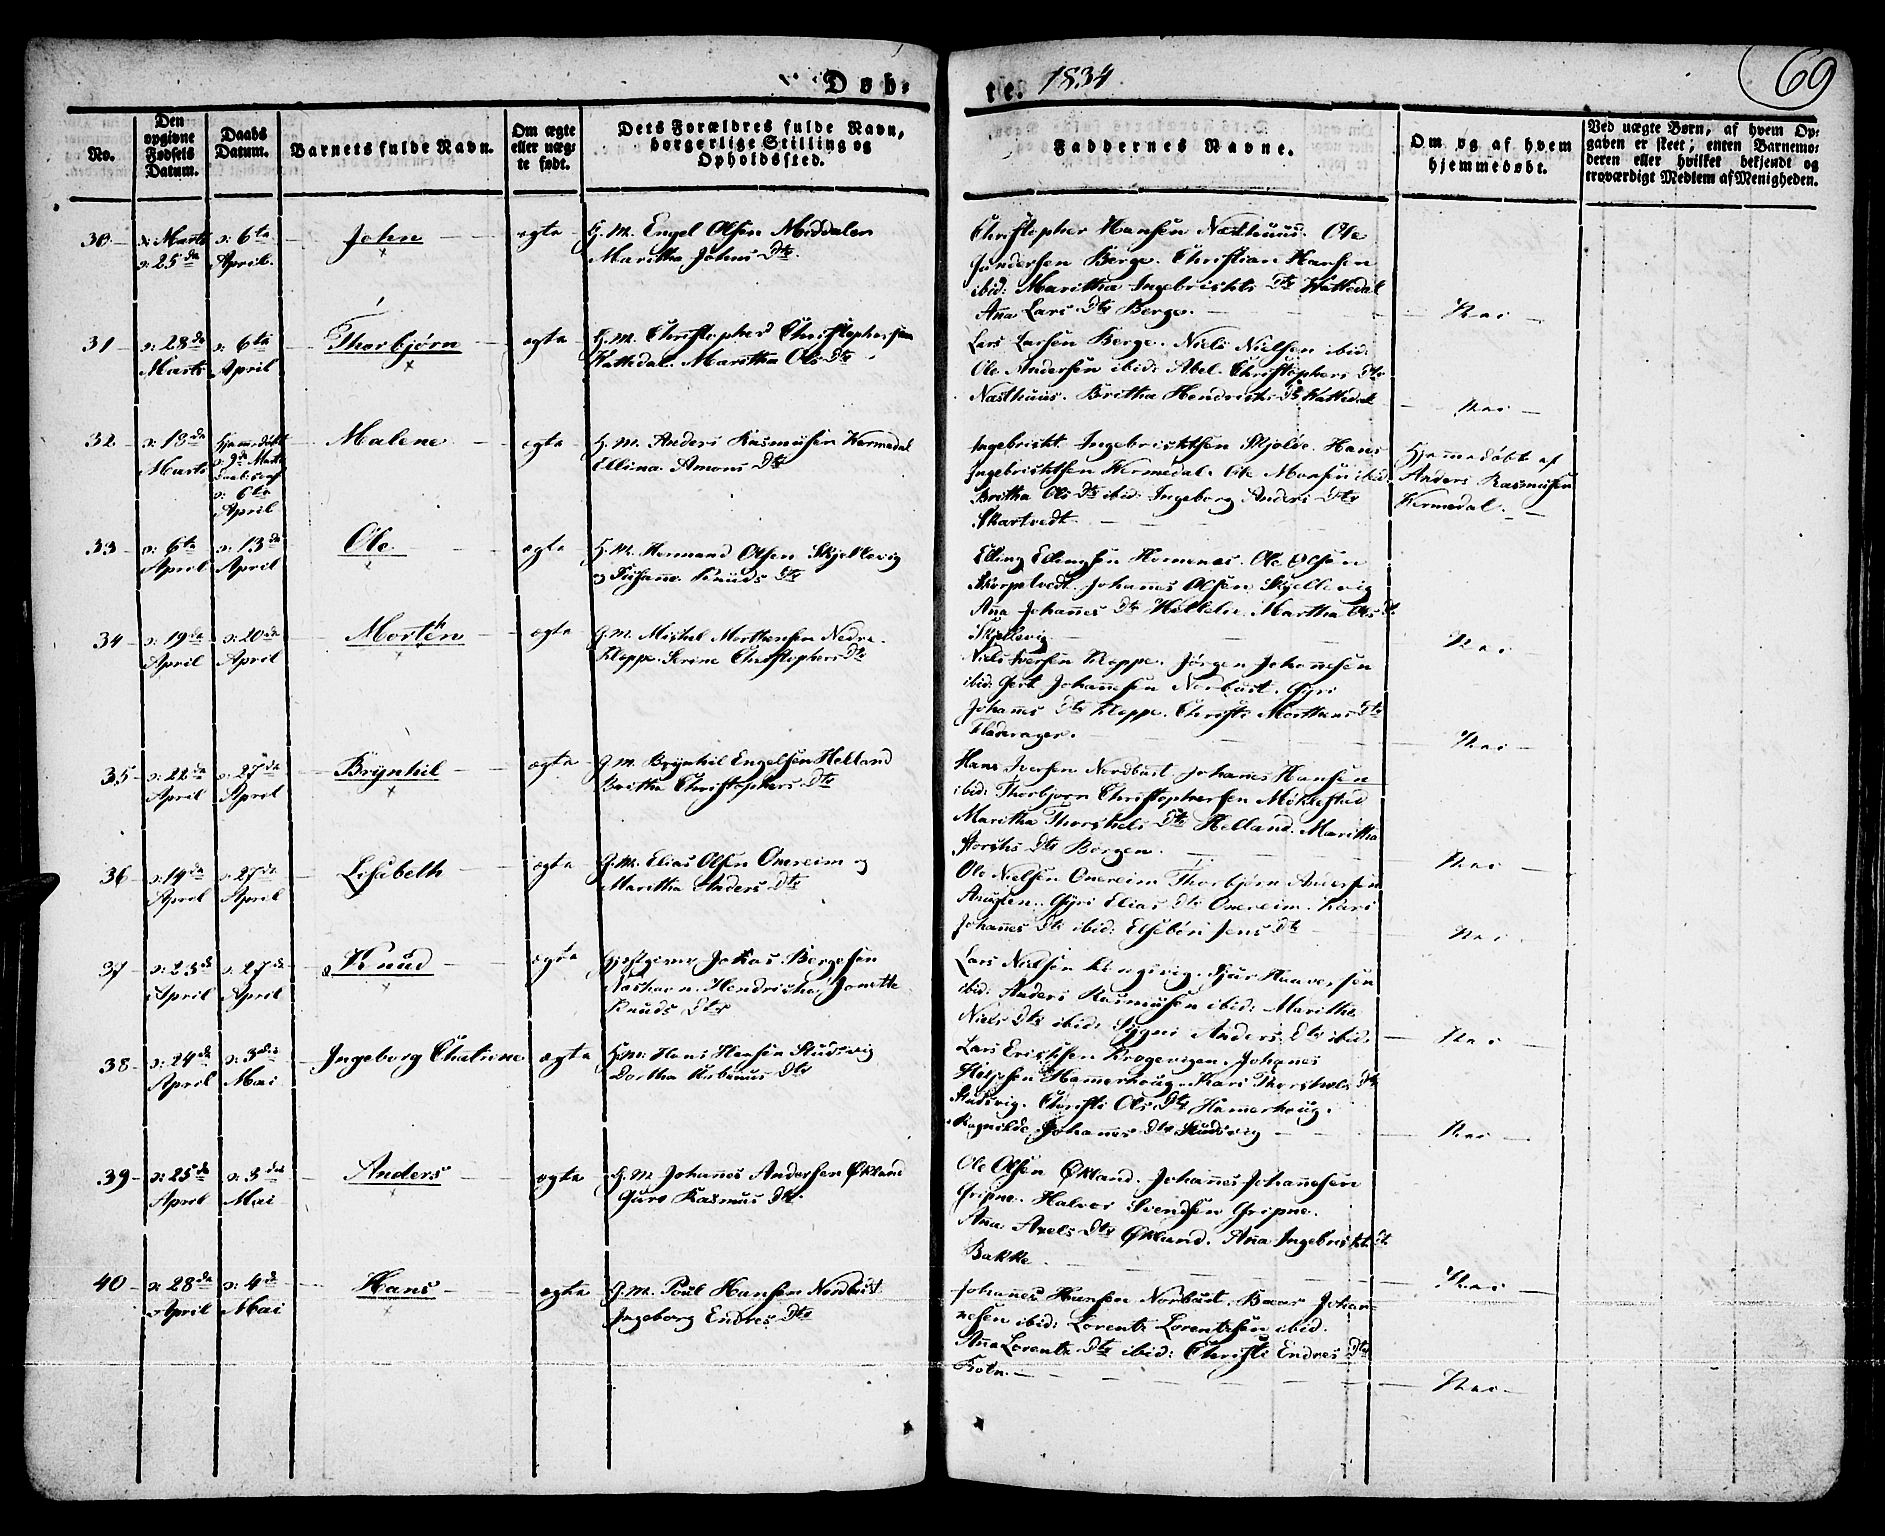 Døb-
te. 1834
69
No.
Den
opgivne
Fødsels
Datum.
Daabs
Datum.
Barnets fulde Navn.
Om ægte
eller uæg-
te født.
Dets Forældres fulde Navn,
borgerlige Stilling og
Opholdssted.
Faddernes Navne.
Om og af hvem
hjemmedøbt.
Ved uægte Børn, af hvem Op-
gaven er skeet; enten Barnemo-
deren eller hvilket bekjendt og
troværdigt Medlem af Menigheden.
30
Marts
25de
6te
April
John
ægte
G. M. Engel Olsen Meddalen
Maritha Johns Dtr
Christopher Hansen Næsthuus. Ole
Gundersen Berge. Christian Hansen
ibid: Maritha Ingebrigts Dtr Wattedal
Ana Lars Dtr Berge.
Nei
31
28de
Marts
6te
April
Thorbjørn
ægte
G. M. Christopher Christophersen
Wattedal. Maritha Ols Dtr
Lars Larsen Berge. Niels Nielsen ibid:
Ole Andersen ibid: Abel Christophers Dtr
Næsthuus. Britha Hendrichs Dtr Wattedal
Nei
32
13de
Marts
Hjemmedøbt
Marts
6te
April
Malene
ægte
G. M. Anders Rasmusen Wermedal
Ellina Amons Dtr
Ingebrigt Ingebrigtsen Skjolde. Hans
Ingebrigtsen Wermedal. Ole Monsen ibid:
Britha Ols Dtr ibid: Ingeborg Anders Dtr
Skartvedt.
Hjemmedøbt af
Anders Rasmusen
Wermedal.
33
6te
April
13de
April
Ole
ægte
G. M. Hermand Olsen Skjellevig
og Susanne Knuds Dtr
Elling Ellingsen Homenes. Ole Olsen
Thorpetvedt. Johannes Olsen Skjellevig
Ana Johannes Dtr Helleli. Martha Ols Dt
Skjellevig
Nei
34
19de
April
20de
April
Morten
ægte
G. M. Michel Morthensen Nedre
Kleppe. Serine Christophers Dtr
Niels Iversen Kleppe. Jørgen Johannesen
ibid: Gert Johannesen Norbust. Gyri
Johannes Dtr Kleppe. Christi Morthens Dtr
Fladerager.
Nei
35
22de
April
27de
April
Brynhil
ægte
G. M. Brynhil Engelsen Helland
Britha Christophers Dtr
Hans Iversen Nordbust. Johannes Hansen
ibid: Thorbjørn Christophersen Miklestad
Maritha Thorkels Dtr Helland. Maritha
Dtr Bergen.
Nei
36
19de
April
27de
April
Lisebeth
ægte
G. M. Elias Olsen Onereim og
Maritha Anders Dtr
Ole Nielsen Onereim Thorbjørn Andersen
Gyri Elias Dtr Onereim. Kari
Johannes Dtr ibid: Jens Dtr
Nei
37
23de
April
27de
April
Knud
ægte
Johas Bergesen
Hendricha Jonette
Knuds Dtr
Lars Nielsen Kingsvig. Sjur Haaversen
ibid: Anders Rasmusen ibid: Marithe
Niels Dtr ibid: Sygni Anders Dtr ibid:
Nei
38
24de
April
3die
Mai
Ingeborg Chatrine
ægte
G. M. Hans Hansen Studsvig
Dorthea Dtr
Lars Erichsen Krogevigen. Johanes
Hammerhoug. Kari Thorkels Dtr
Studsvig. Christi Ols Dtr Hamerhoug.
Ragnilde Johannes Dtr Studsvig
Nei
39
25de
April
3die
Mai
Anders
ægte
G. M. Johannes Andersen Økland
Guro Rasmus Dtr
Ole Olsen Økland. Johannes Johannesen
Gripne. Halvor Svendsen Gripne.
Ana Axels Dtr Økland. Ana Ingebrigts Dt
Bakke
Nei
40
28de
April
4de
Mai
Hans
ægte
G. M. Poul Hansen Nordbust
Ingeborg Endres Dtr
Johannes Hansen Norbust. Baar Johan-
nesen ibid: Lorents Lorentsen ibid.
Ana Lorents Dtr ibid: Christi Endres Dtr
Botn.
Nei